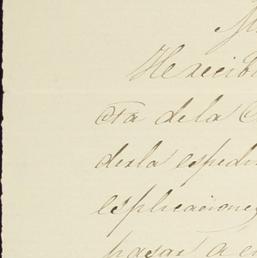 He recib
ta de la C
dirla espedi
esplicaciones
pasar a e